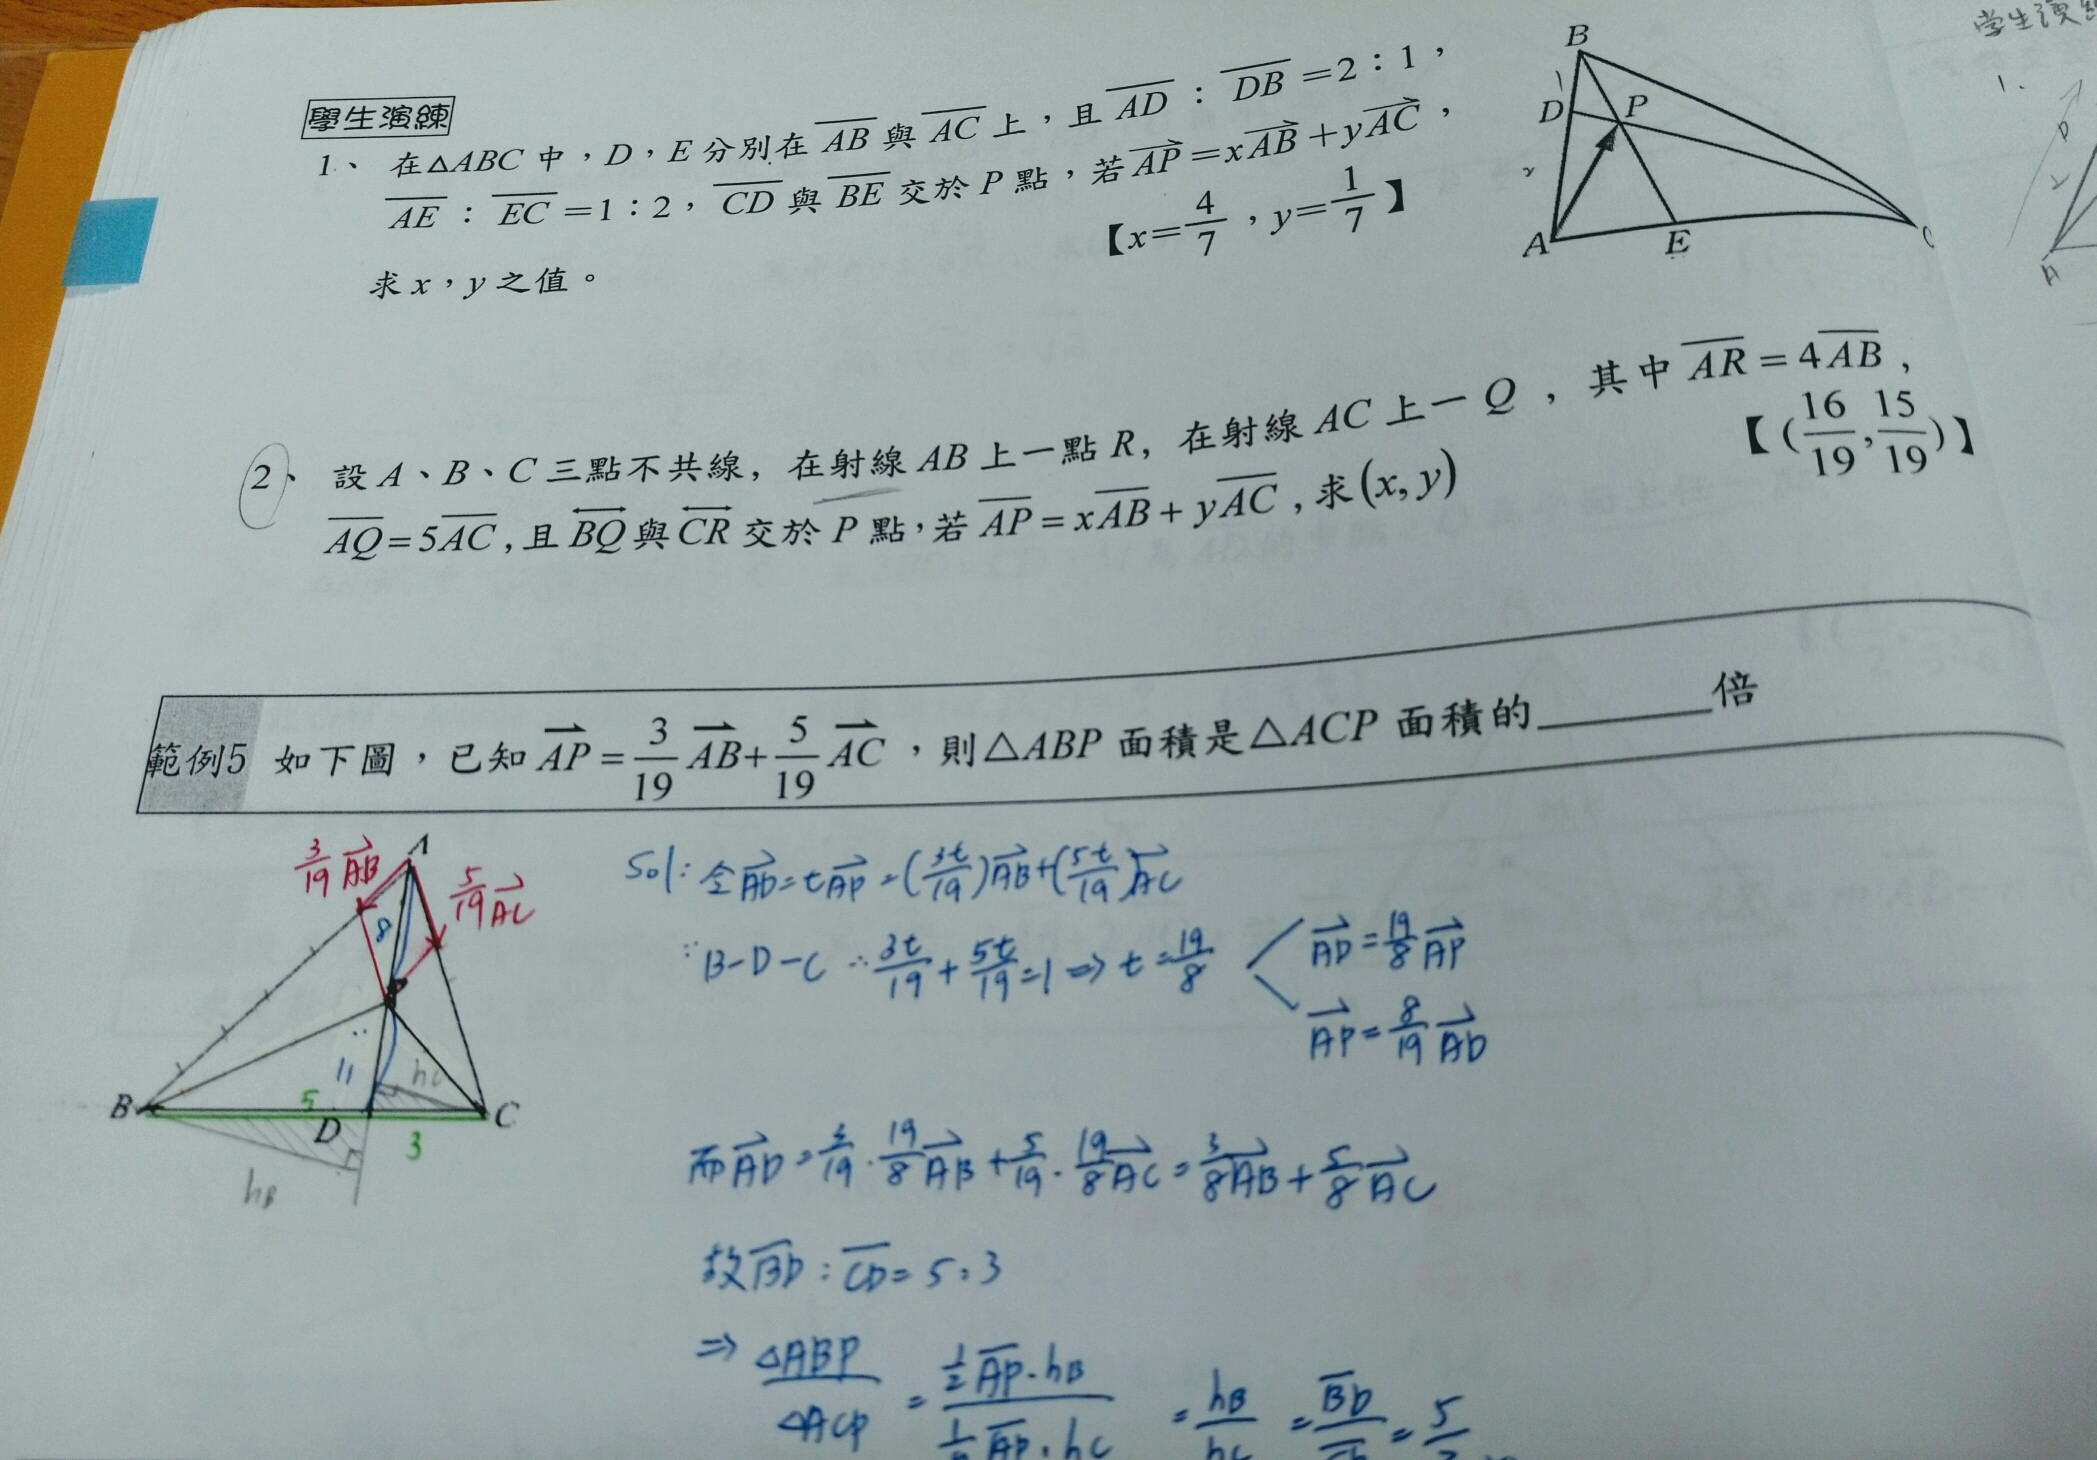 學生演練
1、在△ABC中，D，E分別在AB與AC上，且AD：DB=2：1，
AE：EC=1：2，CD與BE交於P點，若AP=xAB+yAC，
求x，y之值。
【x=4/7，y=1/7】
B
1
D
P
A
E
C
2、設A、B、C三點不共線，在射線AB上一點R，在射線AC上一Q，其中AR=4AB，
AQ=5AC，且BQ與CR交於P點，若AP=xAB+yAC，求(x,y)
【(16/19,15/19)】
範例5 如下圖，已知AP=3/19AB+5/19AC，則△ABP面積是△ACP面積的____倍
A
3/19 AB
5/19 AC
8
11
hC
B
5
D
3
C
hB
Sol: 令AD=tAP=(3t/19)AB+(5t/19)AC
∵B-D-C ∴3t/19+5t/19=1⇒t=19/8
AD=19/8 AP
AP=8/19 AD
而AD=3/19·19/8AB+5/19·19/8AC=3/8AB+5/8AC
故BD：CD=5:3
⇒△ABP/△ACP=(1/2 AP·hB)/(1/2 AP·hC)=hB/hC=BD/CD=5/3
學生演練
1.
A